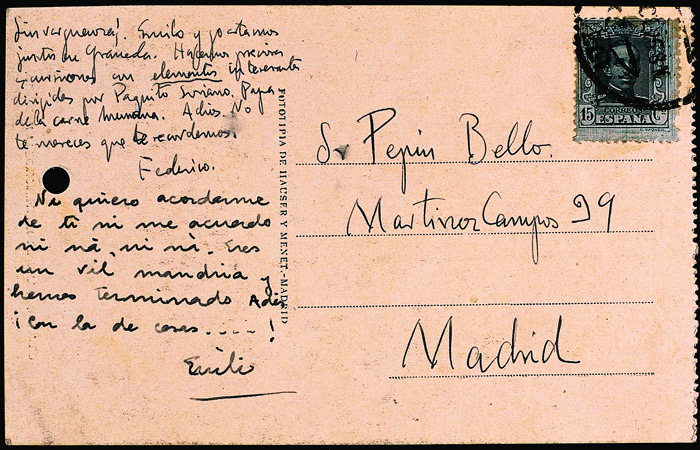 Sinvergüenza! Emilio y yo estamos
juntos en Granada. Hacemos preciosas
excursiones con elementos interesantes
dirigidas por Paquito Soriano. Papa
de la carne humana. Adios. No
te mereces que te recordemos.
Federico.
Ni quiero acordarme
de ti ni me acuerdo
ni ná, ni ni. Eres
un vil mandria y
hemos terminado Adios
¡Con la de cosas.....!
Emilio
FOTOTIPIA DE HAUSER Y MENET.-MADRID
CORREOS
15 ESPAÑA Cs
Sr Pepin Bello.
Martinez Campos 29
Madrid